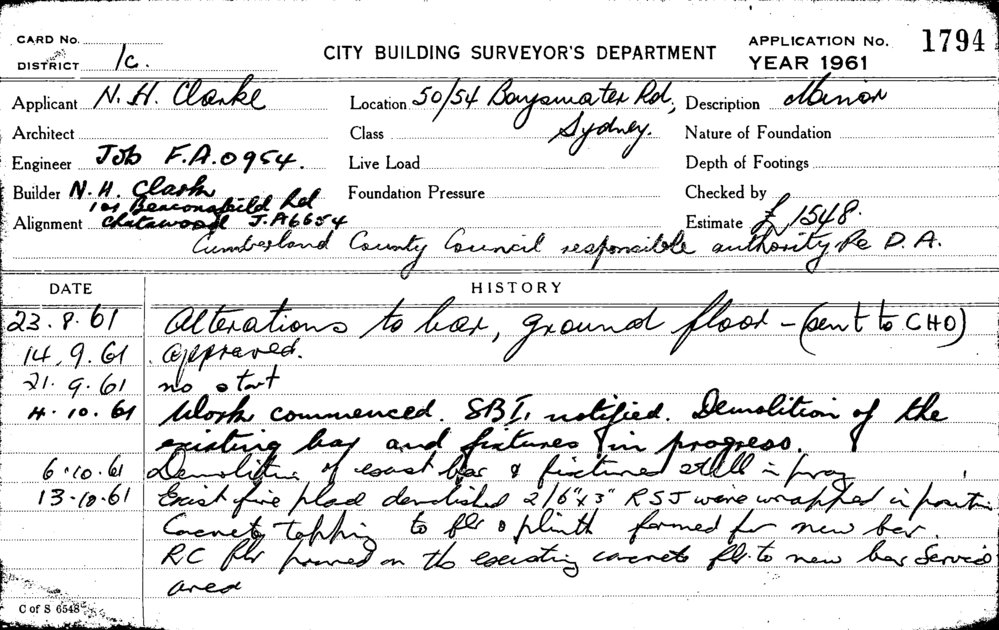 CARD No.
DISTRICT 1c.
CITY BUILDING SURVEYOR'S DEPARTMENT
APPLICATION No. 1794
YEAR 1961
Applicant N. H. Clarke
Location 50/54 Bayswater Rd, Sydney.
Description Minor
Architect
Class
Nature of Foundation
Engineer Job F.A. 0954.
Live Load
Depth of Footings
Builder N. H. Clark
101 Beaconsfield Rd
Foundation Pressure
Checked by
Alignment Chatswood J.A6654
Estimate £1548.
Cumberland County Council responsible authority Re D.A.
DATE HISTORY
23.8.61 Alterations to bar, ground floor - (sent to CHO)
14.9.61 approved.
21.9.61 no start
4.10.61 Work commenced. SBI, notified. Demolition of the
existing bar and fixtures in progress.
6.10.61 Demolition of exist bar & fixtures still in prog
13.10.61 Exist fire place demolished 2/6"x3" RSJ were wrapped in position
Concrete topping to flr & plinth formed for new bar
RC flr poured on the existing concrete flr to new bar service
area
C of S 6548